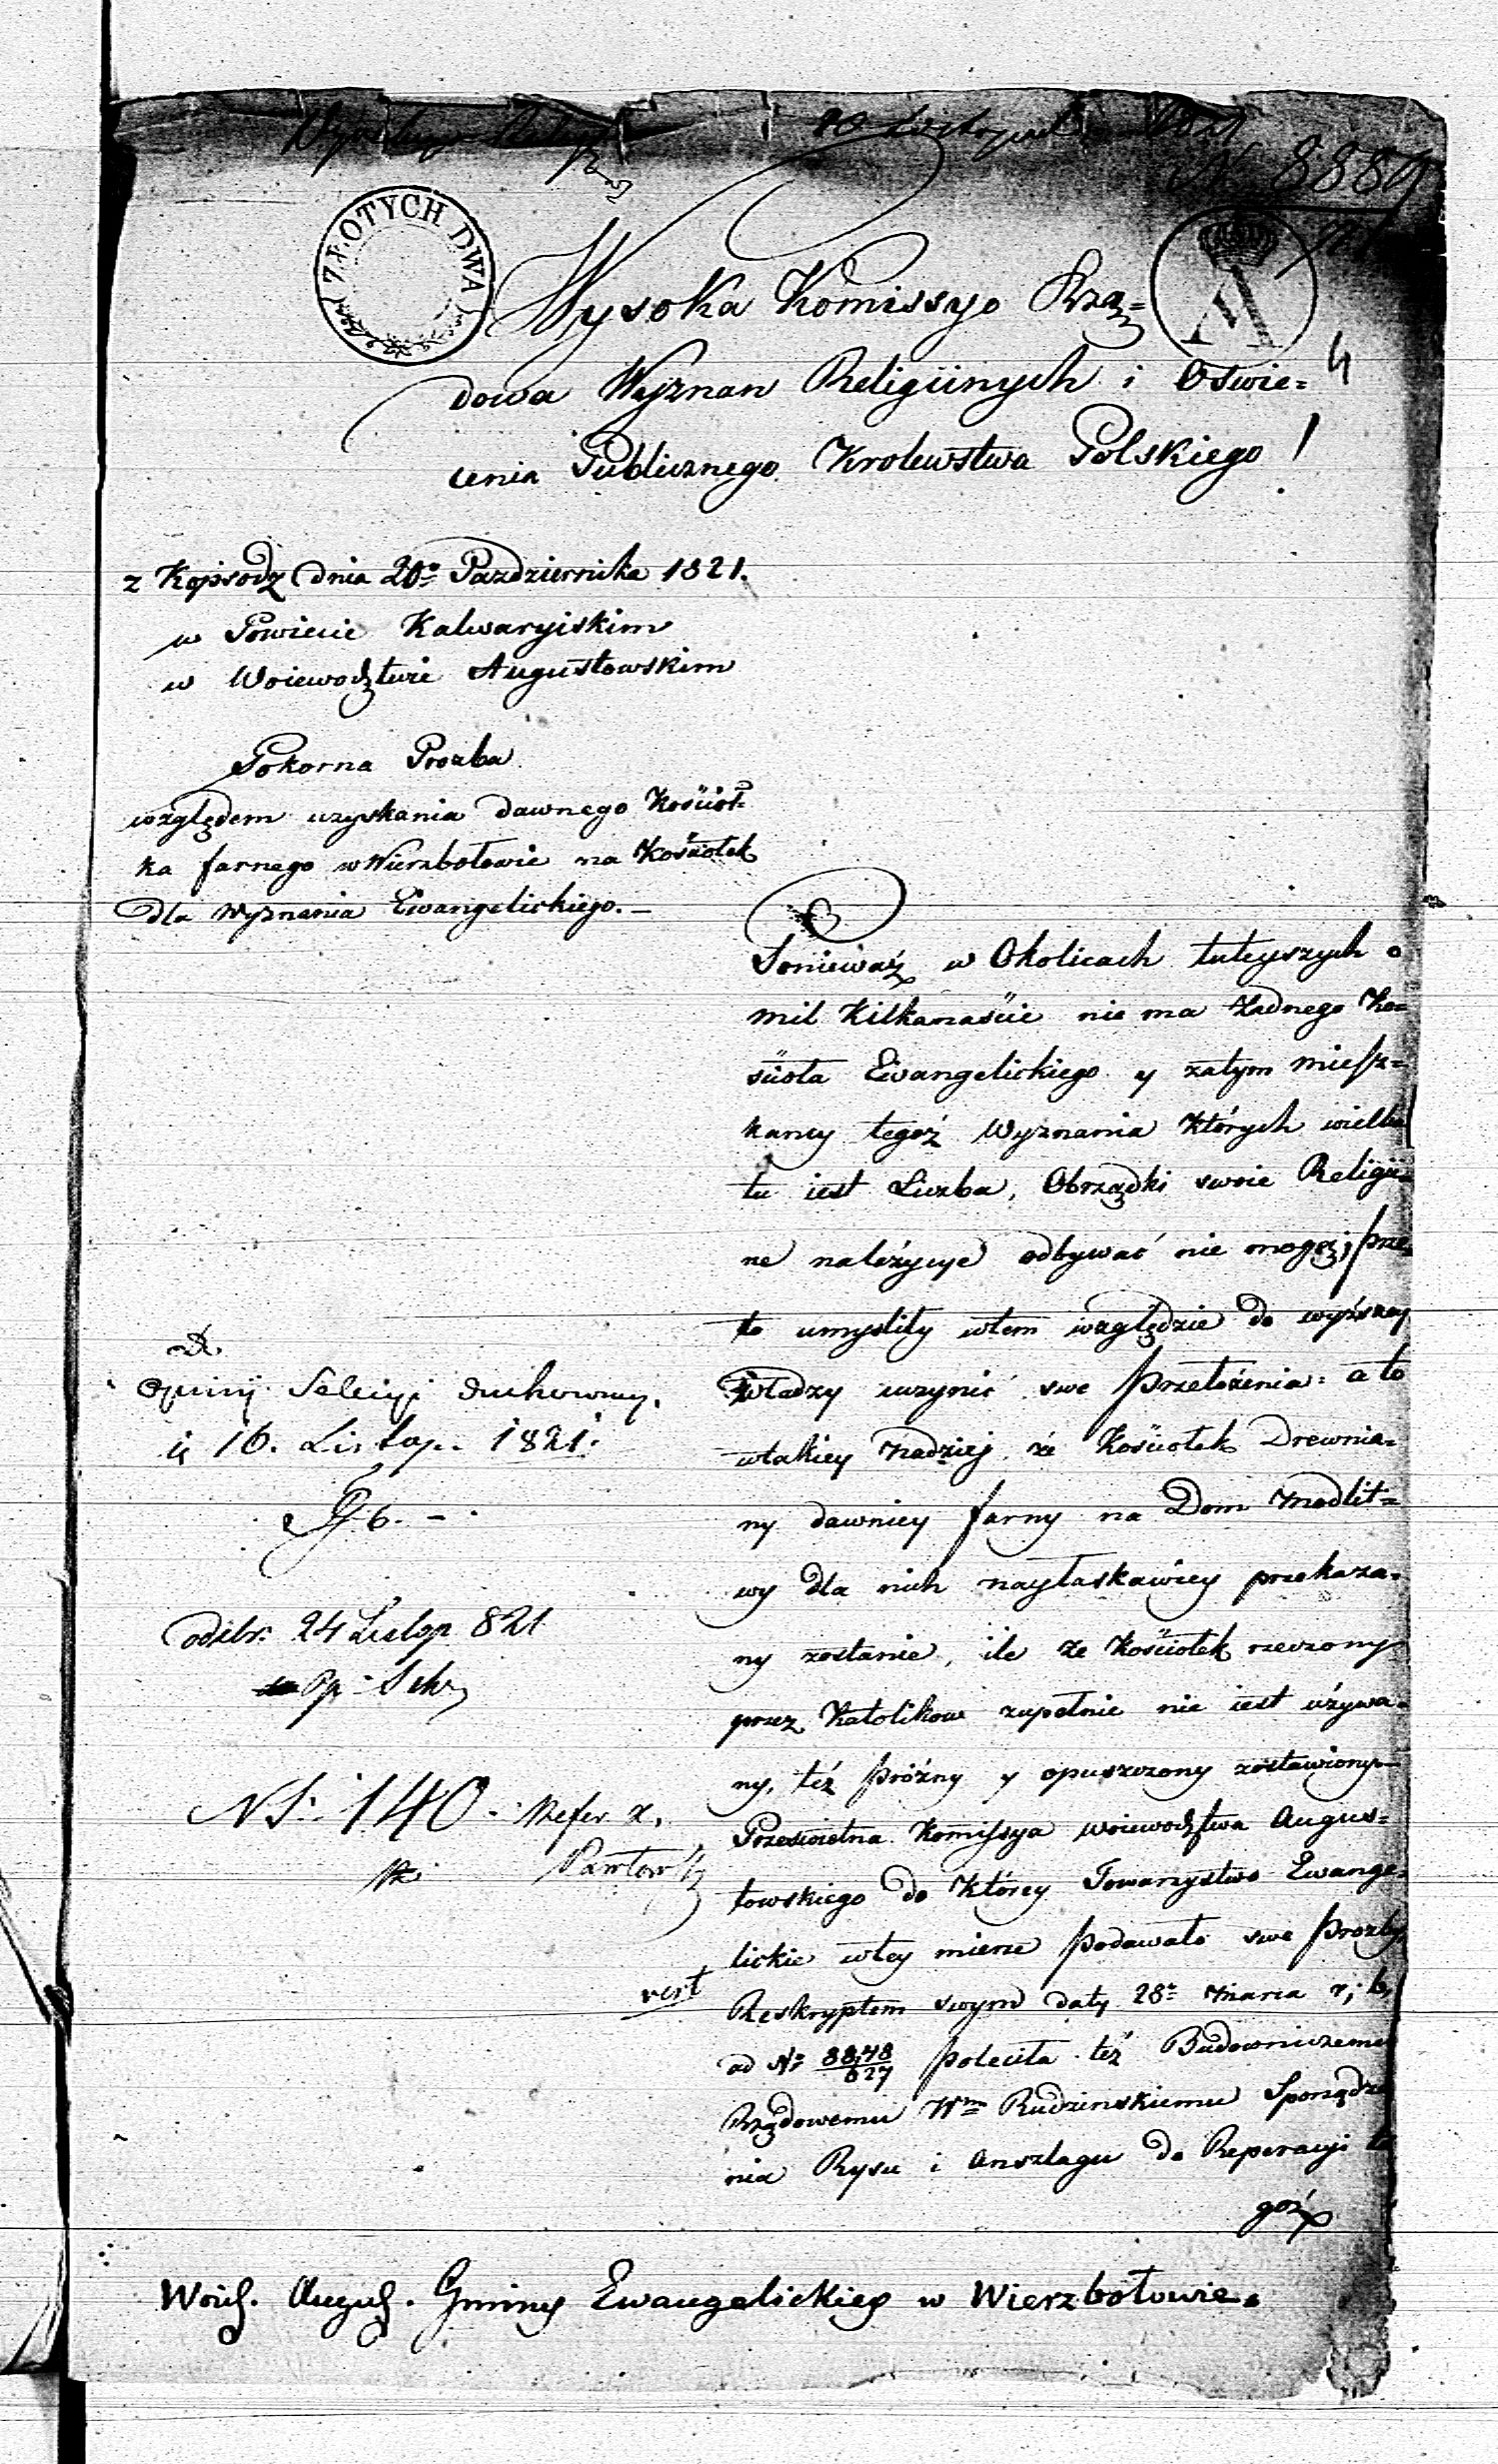 10 Listopad 1821
N 8889
ZŁOTYCH DWA
Wysoka Komissyo Rzą=
dowa Wyznan Religiinych i Oswie=
4
cenia Publicznego Krolewstwa Polskiego!
z Kopsodz dnia 20º Pazdziernika 1821.
w Powiecie Kalwaryiskim
w Woiewodztwie Augustowskim
Pokorna Prozba
względem uzyskania dawnego Kościoł=
ka farnego w Wierzbołowie na Kościołek
dla Wyznania Ewangelickiego.—
Ponieważ w Okolicach tuteyszych o
mil Kilkanaście nie ma żadnego Ko=
ścioła Ewangelickiego y zatym miesz=
kancy tegoż Wyznania których wielka
tu iest Liczba, Obrządki swoie Religii=
ne należycye odbywać nie mogą; prze=
to umyslily wtem względzie do wyższey
Władzy uczynić swe przełożenia: a to
wtakiey Nadzieij że Kościołek Drewnia=
ny dawniey farny na Dom Modlit=
wy dla nich nayłaskawiey przekaza=
ny zostanie, ile że Kościołek rzeczony
przez Katolikow zupełnie nie iest używa=
ny, też próżny y opuszczony zostawiony—
Prześwietna Komissya Woiewodztwa Augus=
towskiego do Którey Towarzystwo Ewange=
lickie wtey mierze podawało swe prozby
Reskryptem swym daty 28º Marca r; b,
ad Nº 8848/627 poleciła też Budowniczemu
Rządowemu Wm Rudzinskiemu Sporządze
nia Rysu i Anszlagu do Reperacyi te
goż
Opinij Sekcyi duchowney.
d 16. Listop. 1821.
odebr: 24 Listop 821
Op: Sekr
NS: 140. Refer X.
vert
Woid. August. Gminy Ewangelickiey w Wierzbołowie.